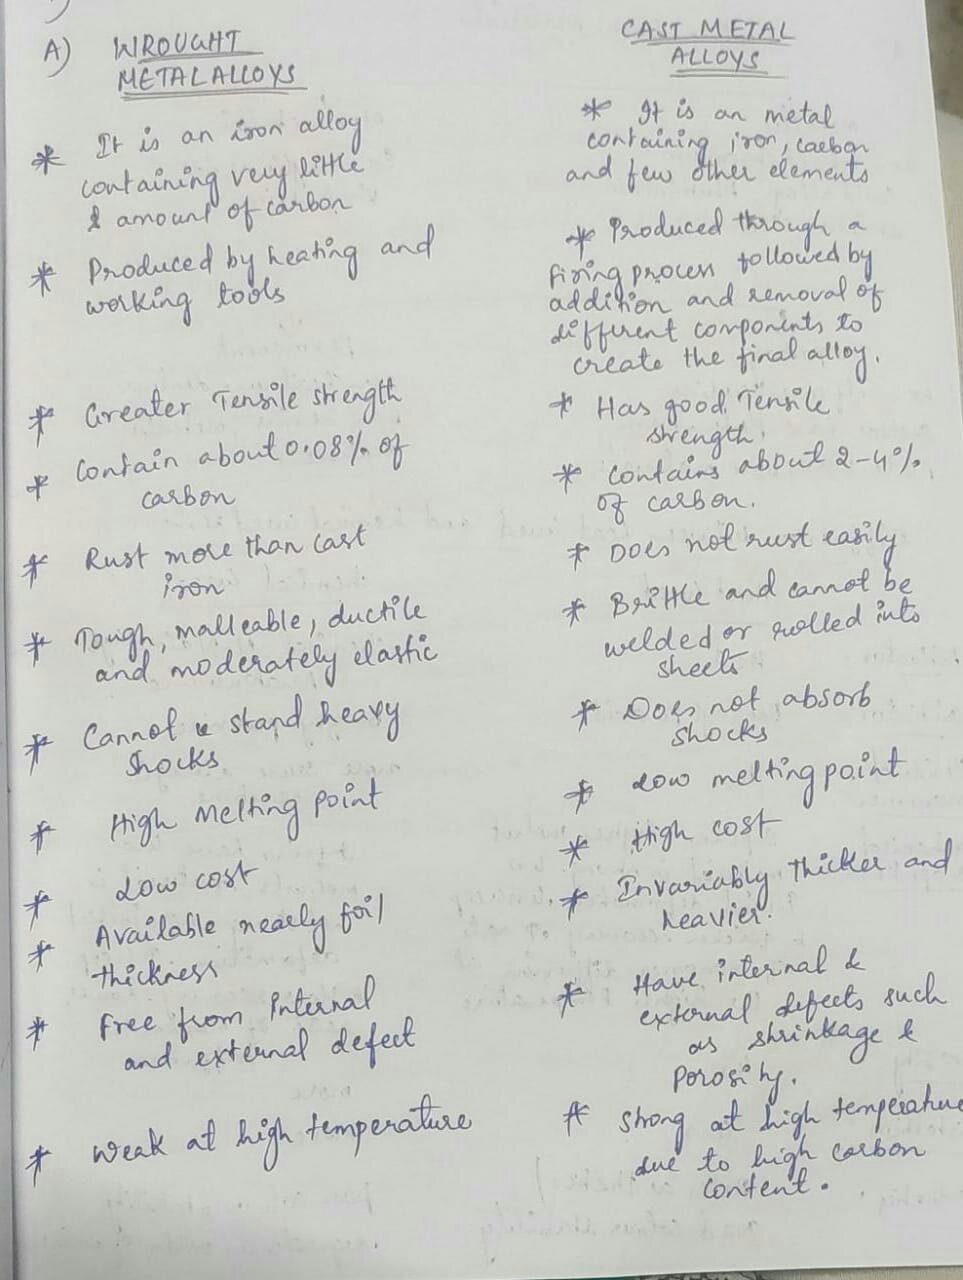 A) WROUGHT
METAL ALLOYS
* It is an iron alloy
containing very little
& amount of carbon
* Produced by heating and
working tools
* Greater Tensile strength
* Contain about 0.08% of
carbon
* Rust more than cast
iron
* Tough, malleable, ductile
and moderately elastic
* Cannot stand heavy
shocks
* High Melting point
* Low cost
* Available nearly foil
thickness
* Free from Internal
and external defect
* Weak at high temperature
CAST METAL
ALLOYS
* It is an metal
containing iron, carbon
and few other elements
* Produced through a
firing process followed by
addition and removal of
different components to
create the final alloy.
* Has good Tensile
strength.
* Contains about 2-4%
of carbon.
* Does not rust easily
* Brittle and cannot be
welded or rolled into
sheets
* Does not absorb
shocks
* Low melting point
* High cost
* Invariably thicker and
heavier.
* Have internal &
external defects such
as shrinkage &
Porosity.
* Strong at high temperature
due to high carbon
content.